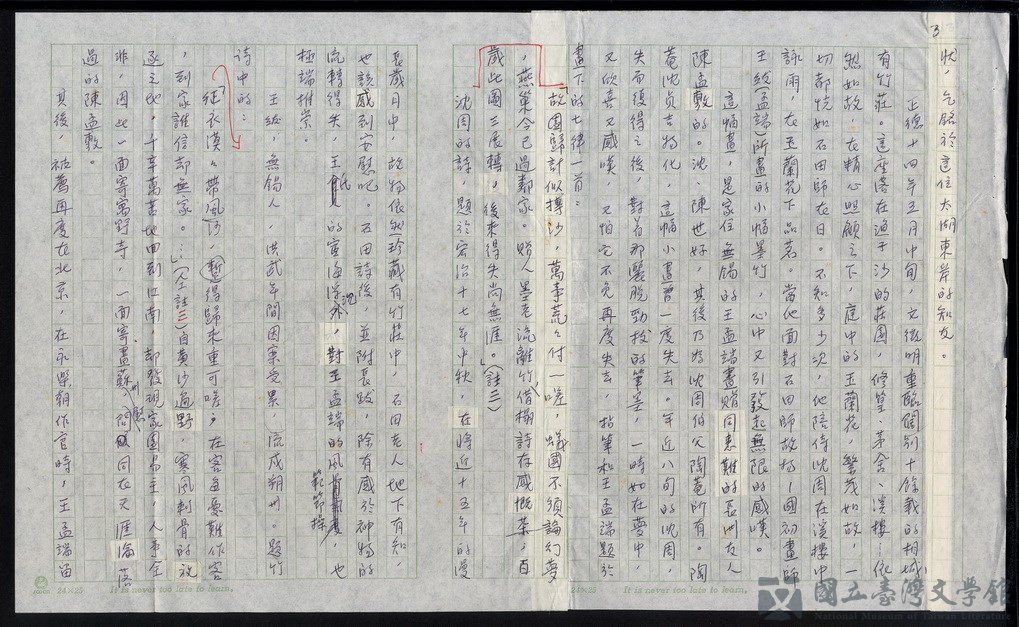 3
狀，乞銘於這位太湖東岸的知友。
正德十四年三月中旬，文徵明重臨闊別十餘載的相城
有竹莊。這座落在漁千沙的莊園，修篁、茅舍、溪樓…依
然如故，在精心照顧之下，庭中的玉蘭花，繁茂如故，一
切都恍如石田師在日。不知多少次，他陪侍沈周在溪樓中
詠雨，在玉蘭花下品茗。當他面對石田師故物：國初畫師
王紱(孟端)所畫的小幅墨竹，心中又引發起無限的感嘆。
這幅畫，是家住無錫的王孟端畫贈同患難的長洲友人
陳孟敷的。沈、陳世好，其後乃為沈周伯父陶菴所有。陶
菴沈貞吉物化，這幅小畫曾一度失去。年近八旬的沈周，
失而復得之後，對着那灑脫勁拔的筆墨，一時如在夢中，
又欣喜又感嘆，又怕它不免再度失去，拈筆和王孟端題於
畫下的七律一首：
「故園歸計似摶沙，萬事荒荒付一嗟，蟻國不須論幻夢
，燕巢今已過鄰家。贈人墨老流離竹，借榻詩存感慨茶，百
歲此圖三展轉，後來得失尚無涯。」(註二)
沈周的詩，題於宏治十七年中秋，在將近十五年的漫
長歲月中，故物依然珍藏有竹莊中，石田老人地下有知，
也該感到安慰吧。石田詩後，並附長跋，除有感於神物的
流轉得失，王紱的宦海浮沈，對王孟端的風範節操，也
極端推崇。
王紱，無錫人，洪武年間因案受累，流戍朔州。題竹
詩中的：
「征衣漠漠帶風沙，暫得歸來重可嗟；在客每憂難作客
，到家誰信却無家。…」(仝註三)自黃沙遍野，寒風刺骨的放
逐之地，千辛萬苦地回到江南，却發現家園易主，人事全
非，因此一面寄寓野寺，一面寄畫蘇州，慰問同在天涯淪落
過的陳孟敷。
其後，被薦再度在北京，在永樂朝作官時，王孟端留
24×25
It is never too late to learn.
24×25
It is never too late to learn.
國立臺灣文學館
National Museum of Taiwan Literature